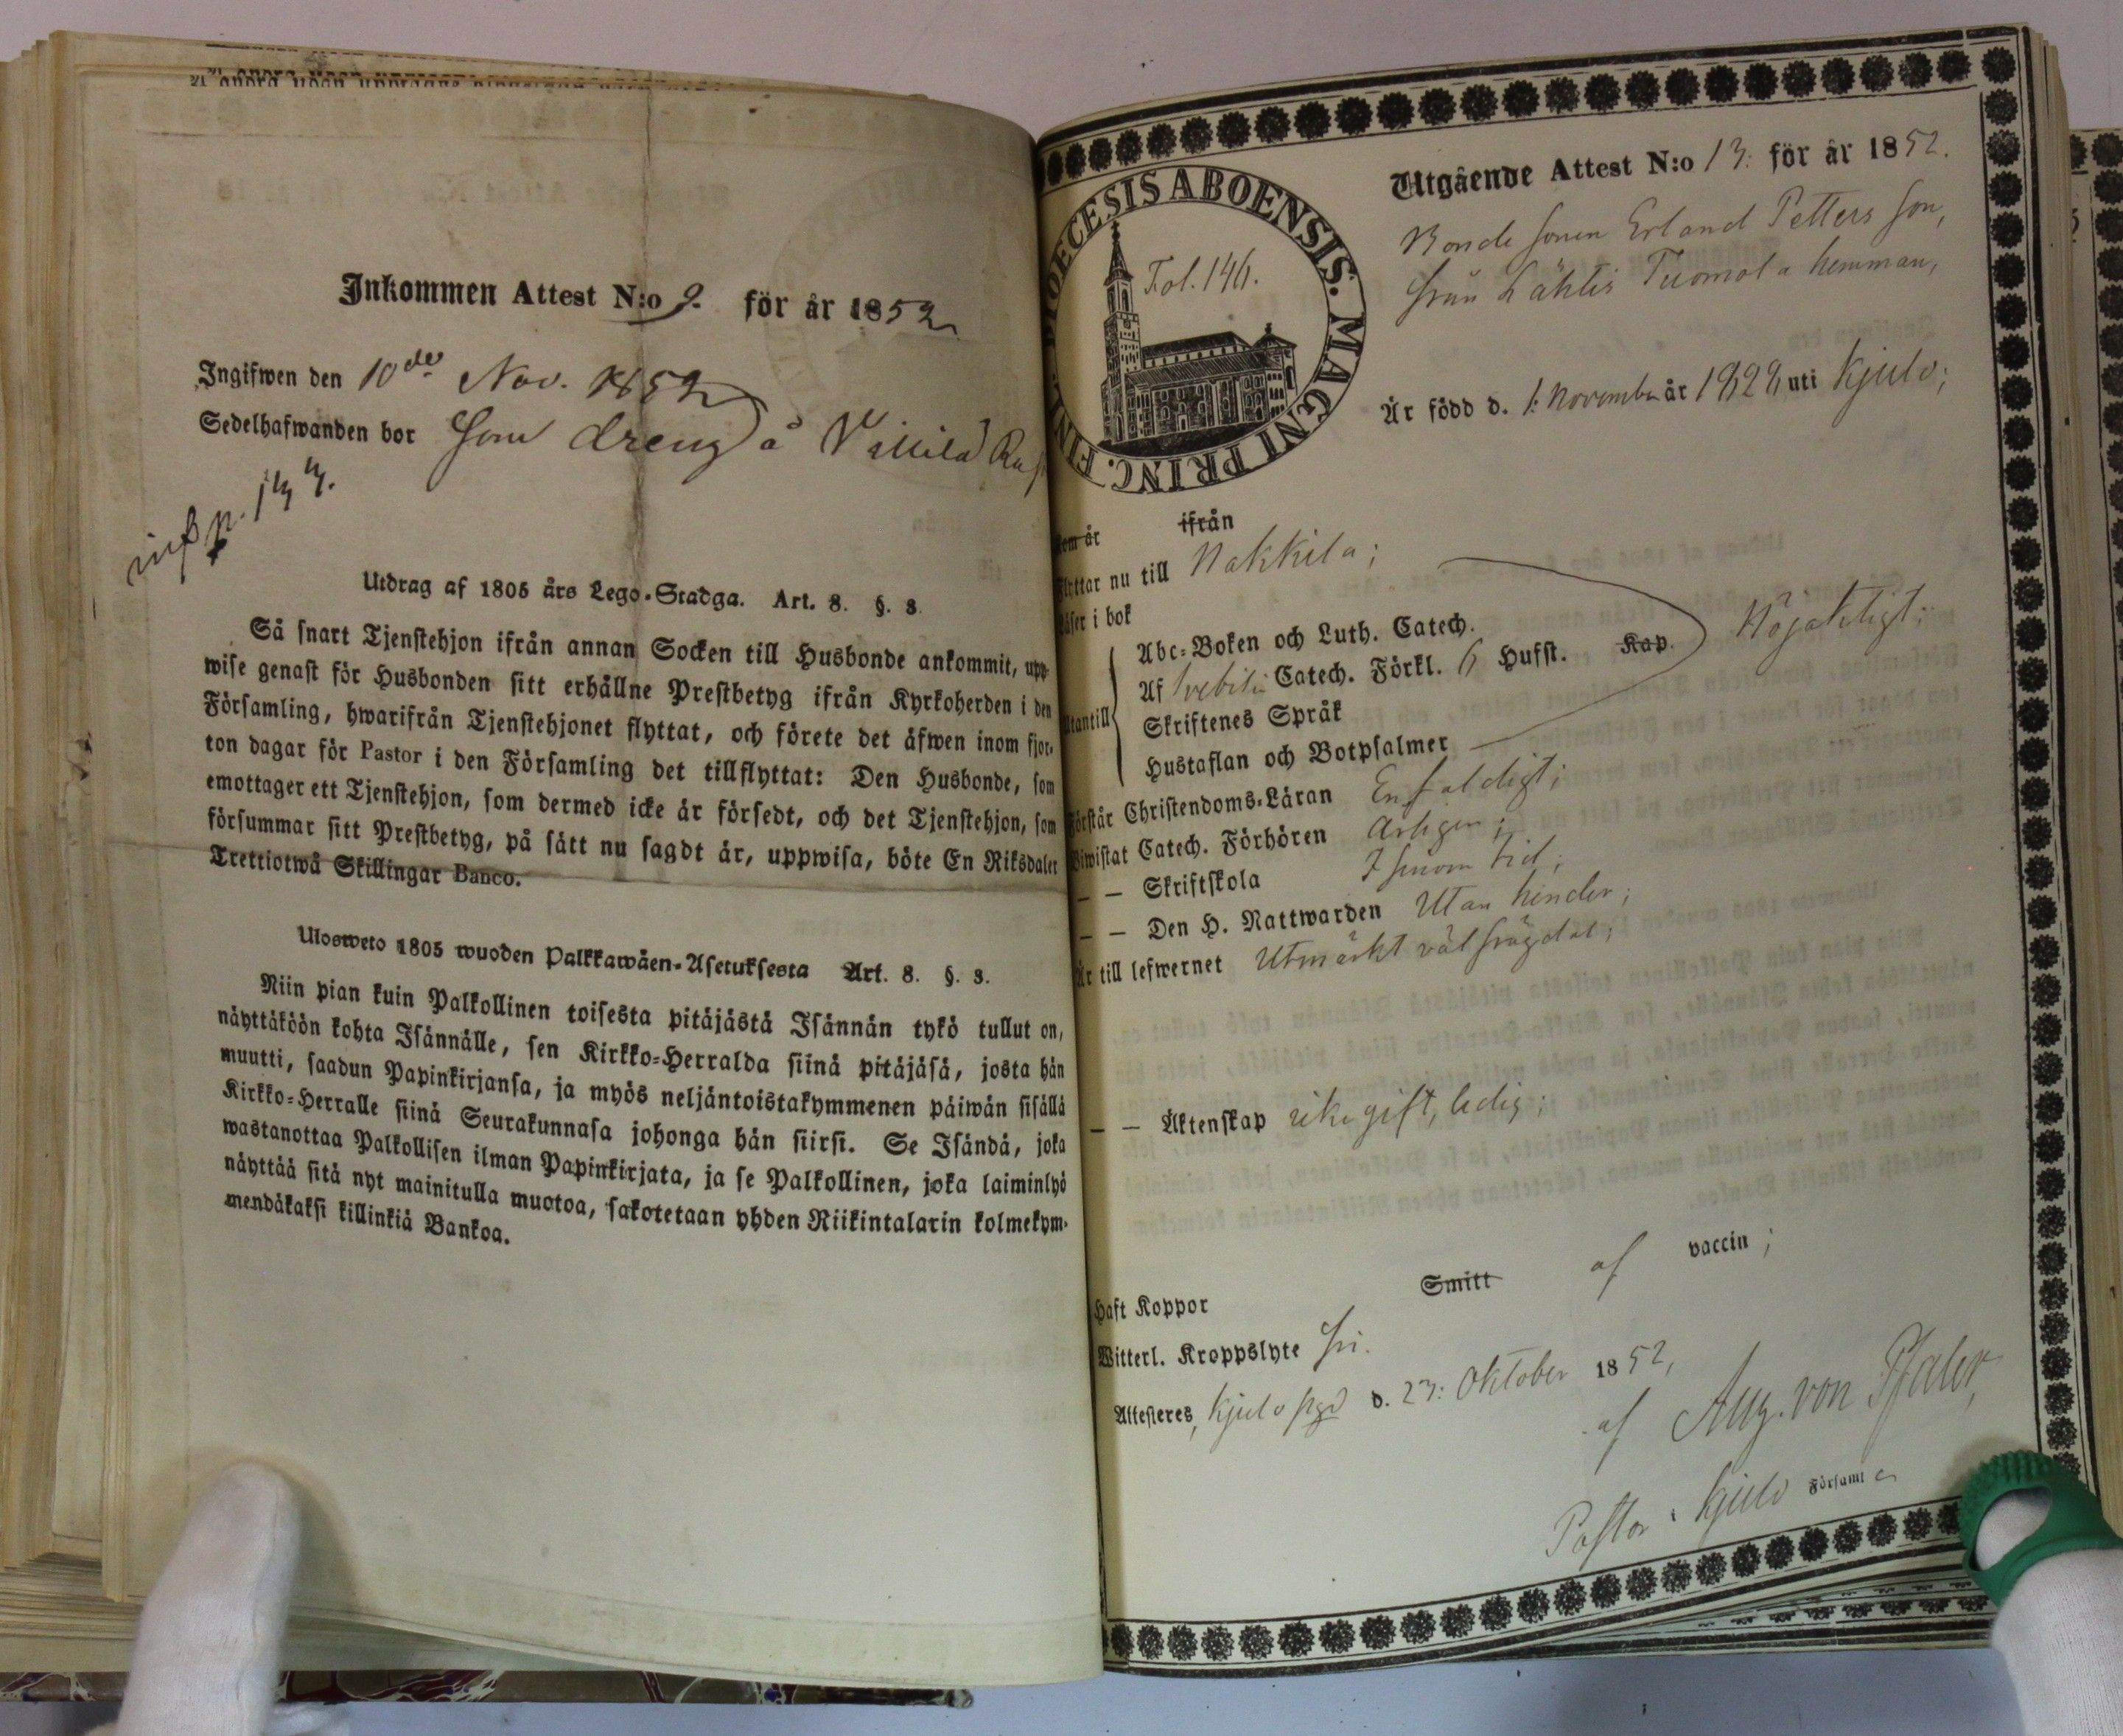 Inkommen Attest N:o 9. för år 1852
Ingifwen den 10de Nov. 1852
Sedelhafwanden bor som dreng å
inf. p.
Utdrag af 1805 års Lego-Stadga. Art. 8. §. 3.
Så snart Tjenstehjon ifrån annan Socken till Husbonde ankommit, upp-
wise genast för Husbonden sitt erhållne Prestbetyg ifrån Kyrkoherden i den
Församling, hwarifrån Tjenstehjonet flyttat, och förete det äfwen inom fjor-
ton dagar för Pastor i den Församling det tillflyttat: Den Husbonde, som
emottager ett Tjenstehjon, som dermed icke är försedt, och det Tjenstehjon, som
försummar sitt Prestbetyg, på sätt nu sagdt är, uppwisa, böte En Riksdaler
Trettiotwå Skillingar Banco.
Ulosweto 1805 wuoden Palkkawäen-Asetuksesta Art. 8. §. 3.
Niin pian kuin Palkollinen toisesta pitäjästä Isännän tykö tullut on,
näyttäköön kohta Isännälle, sen Kirkko-Herralda siinä pitäjäsä, josta hän
muutti, saadun Papinkirjansa, ja myös neljäntoistakymmenen päiwän sisällä
Kirkko-Herralle siinä Seurakunnasa johonga hän siirsi. Se Isändä, joka
wastanottaa Palkollisen ilman Papinkirjata, ja se Palkollinen, joka laiminlyö
näyttää sitä nyt mainitulla muotoa, sakotetaan yhden Riikintalarin kolmekym-
mendäkaksi killinkiä Bankoa.
DIOECESIS ABOENSIS. MAGNI PRINC. FINL.
Fol. 146.
Utgående Attest N:o 13. för år 1852.
Bonde sonen Erland Petters son,
från Lähtis Tuomola hemman,
Är född d. 1: November år 1828 uti Kjulo;
som är ifrån
Flyttar nu till Nakkila;
Läser i bok
Abc-Boken och Luth. Catech.
Utantill Af Svebilii Catech. Förkl. 6 Hufst. Kap. Nöjaktigt;
Skriftenes Språk
Hustaflan och Botpsalmer
Förstår Christendoms-Läran Enfaldigt;
Biwistat Catech. Förhören Årligen;
— — Skriftskola I sinom tid;
— — Den H. Nattwarden Utan hinder;
Är till lefwernet Utmärkt väl frägdad;
— — Äktenskap icke gift, ledig;
Haft Koppor Smitt af vaccin;
Witterl. Kroppslyte fri.
Attesteres, Kjulo pgd d. 23: Oktober 1852,
af Aug. von Pfaler,
Pastor i Kjulo Församl